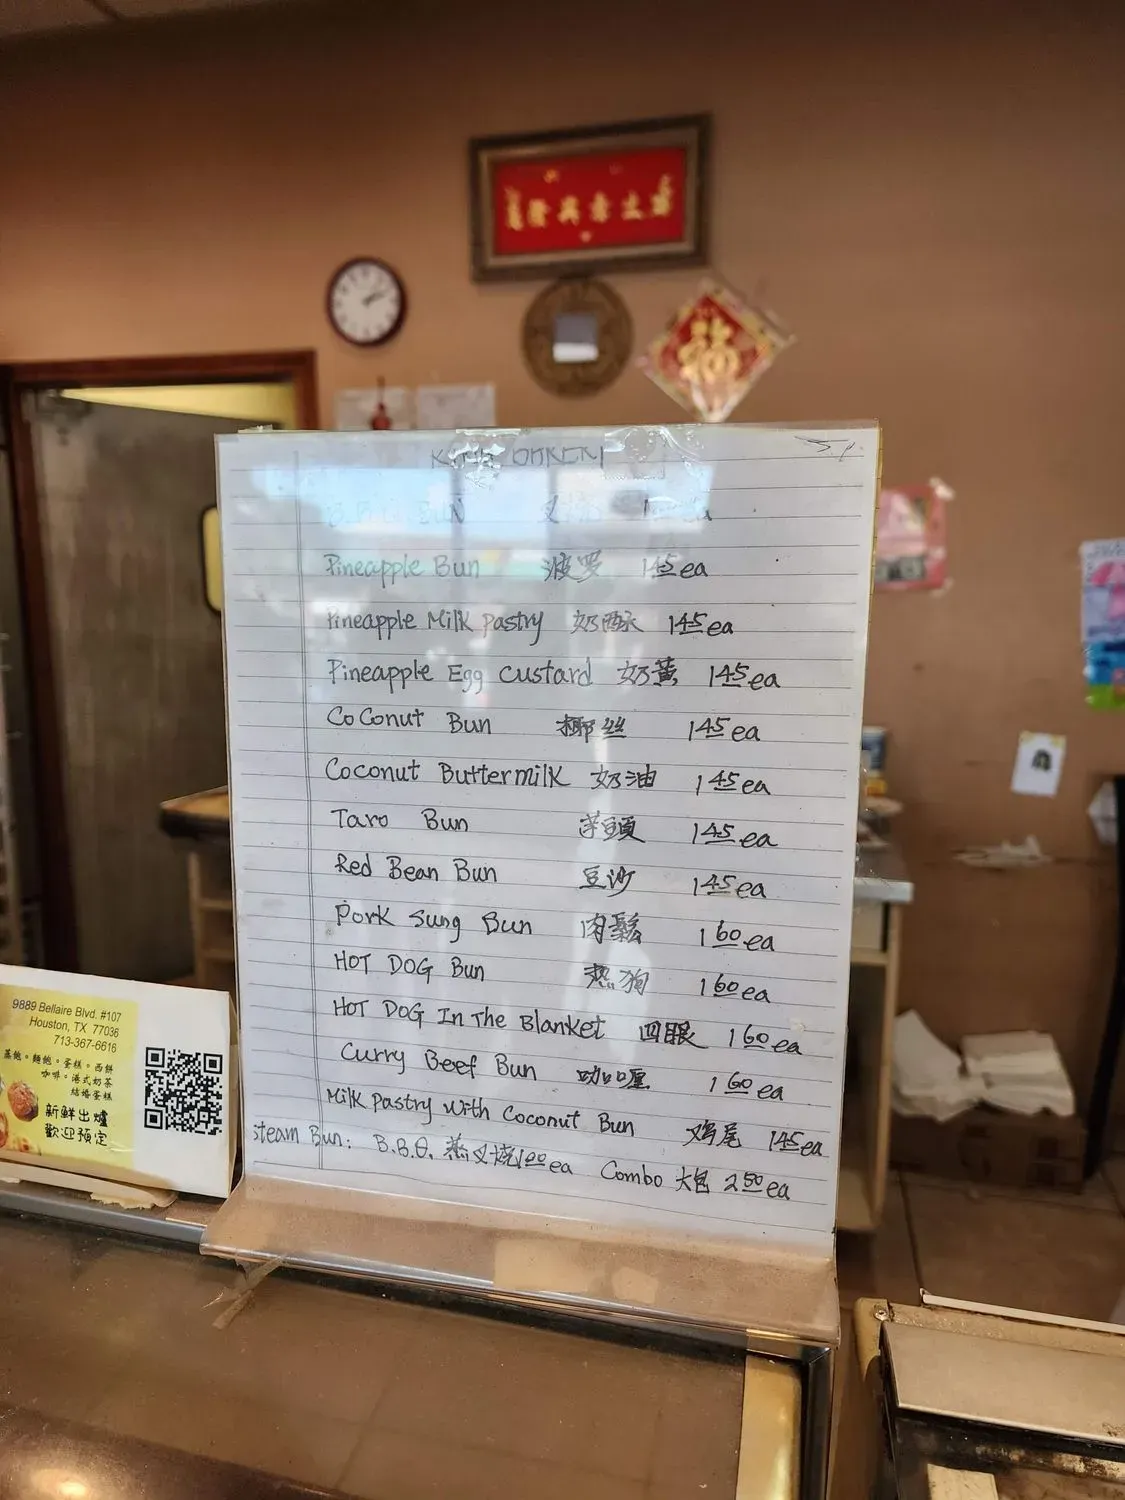 福
KING BAKERY
B.B.Q BUN 叉燒
Pineapple Bun 波罗 1 45 ea
Pineapple Milk pastry 奶酥 1 45 ea
Pineapple Egg custard 奶黃 1 45 ea
CoConut Bun 椰丝 1 45 ea
Coconut Buttermilk 奶油 1 45 ea
Taro Bun 芋頭 1 45 ea
Red Bean Bun 豆沙 1 45 ea
Pork Sung Bun 肉鬆 1 60 ea
HOT DOG Bun 热狗 1 60 ea
HOT DOG In The Blanket 四眼 1 60 ea
Curry Beef Bun 咖喱 1 60 ea
Milk pastry with Coconut Bun 鸡尾 1 45 ea
steam Bun: B.B.Q. 蒸叉烧 1 00 ea Combo 大包 2 50 ea
9889 Bellaire Blvd. #107
Houston, TX 77036
713-367-6616
蒸飽。麵飽。蛋糕。西餅
咖啡。港式奶茶
結婚蛋糕
新鮮出爐
歡迎預定